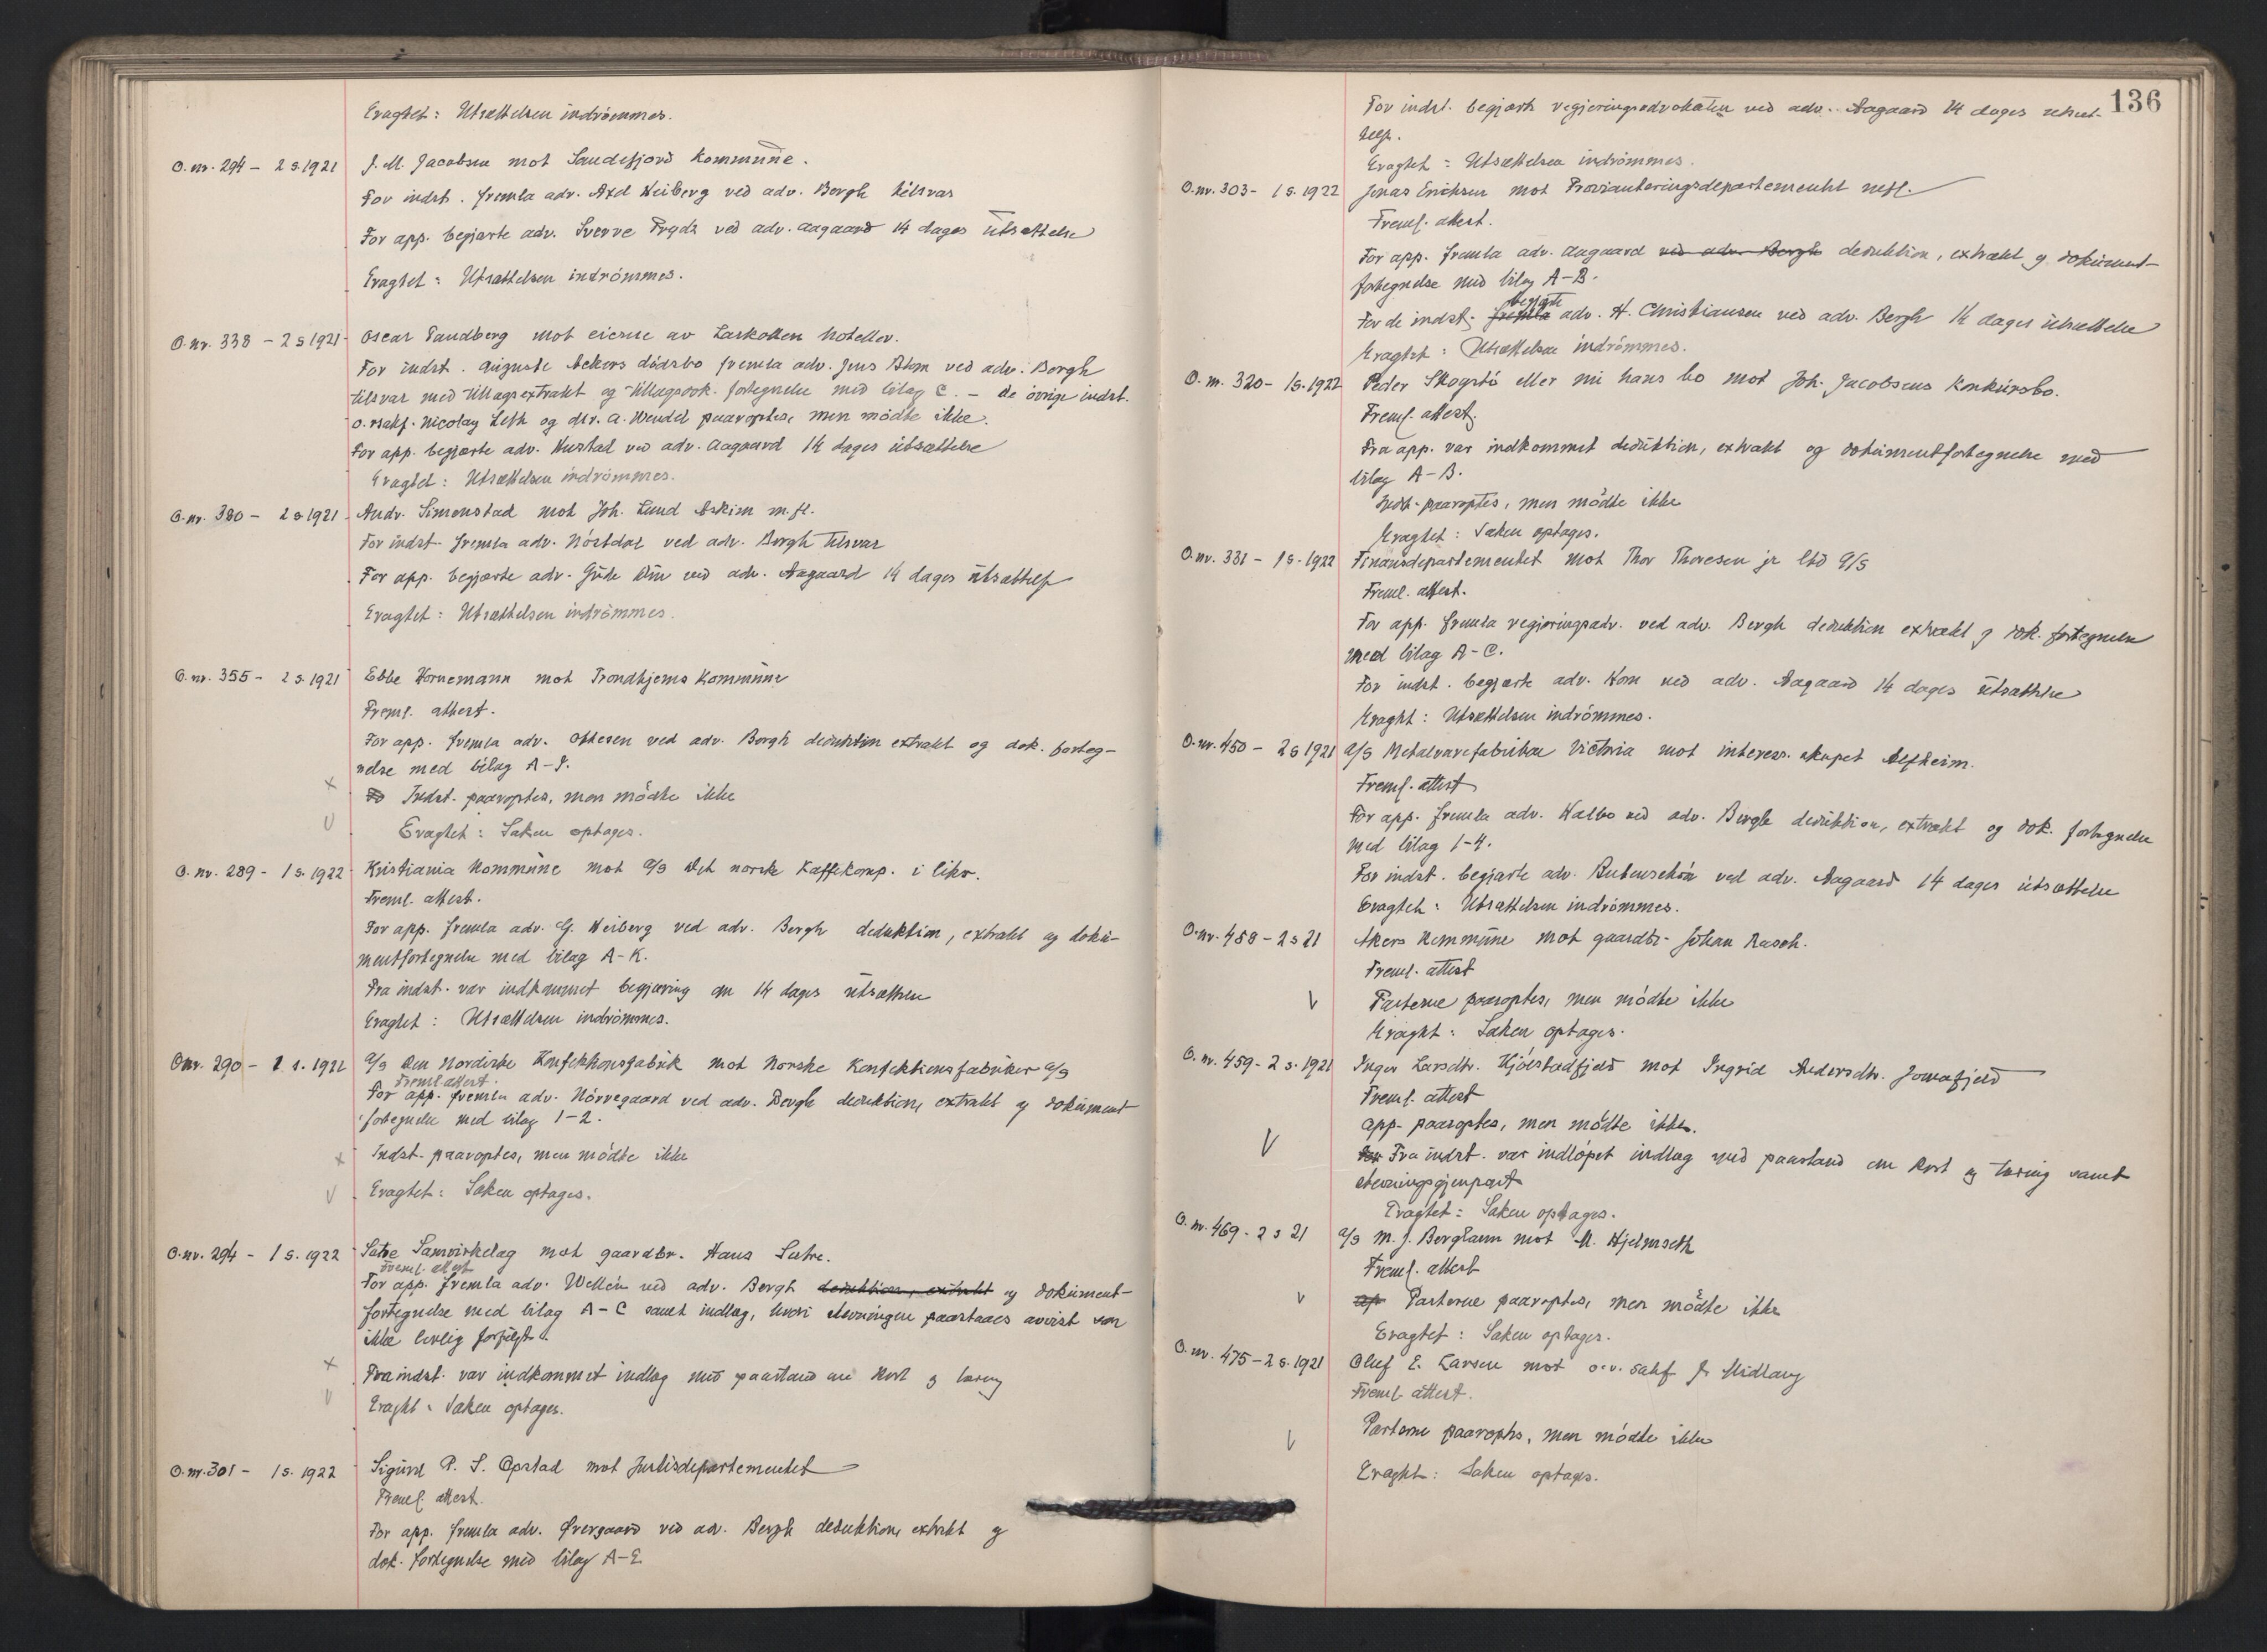 Eragtet: Utsættelsen indrömmes.
O. nr. 294 - 2 s. 1921 J. M. Jacobsen mot Sandefjord kommune.
For indst. fremla adv. Axel Heiberg ved adv. Bergh tilsvar
For app. begjærte adv. Sverre Frydz ved adv. Aagaard 14 dages utsættelse
Eragtet: Utsættelsen indrömmes.
O. nr. 338 - 2 s 1921 Oscar Sandberg mot eierne av Larkollen hoteller.
For indst. Auguste Ackers dödsbo fremla adv. Jens Blom ved adv. Bergh
tilsvar med tillægsextrakt og tillægsdok. fortegnelse med bilag C. - De övrige indst.
o.rsakf. Nicolay Leth og dir. A. Wendel paaroptes, men mödte ikke.
For app. begjærte adv. Hustad ved adv. Aagaard 14 dages utsættelse
Eragtet: Utsættelsen indrömmes.
O. nr. 380 - 2 s 1921 Andr. Simonstad mot Joh. Lund Askim m.fl.
For indst. fremla adv. Nörsdal ved adv. Bergh tilsvar
For app. begjærte adv. ved adv. Aagaard 14 dages utsættelse
Eragtet: Utsættelsen indrömmes.
O. nr. 355 - 2 s. 1921 Ebbe Hornemann mot Trondhjems kommune
Freml. attest.
For app. fremla adv. Ottesen ved adv. Bergh deduktion extrakt og dok. forteg-
nelse med bilag A-J.
Indst. paaroptes, men mödte ikke
Eragtet: Saken optages.
O. nr. 289 - 1 s. 1922 Kristiania kommune mot A/S Det norske Kaffekomp. i likv.
Freml. attest.
For app. fremla adv. G. Heiberg ved adv. Bergh deduktion, extrakt og doku-
mentfortegnelse med bilag A-K.
Fra indst. var indkommet begjæring om 14 dages utsættelse
Eragtet: Utsættelsen indrömmes.
O nr. 290 - 1 s. 1922 A/S Den Nordiske Konfektionsfabrik mot Norske Konfektionsfabriker A/S
Freml. attest.
For app. fremla adv. Nörregaard ved adv. Bergh deduktion, extrakt og dokument
fortegnelse med bilag 1-2.
Indst. paaroptes, men mödte ikke
Eragtet: Saken optages.
O. nr. 294 - 1 s. 1922 Satre Samvirkelag mot gaardbr. Hans Satre.
Freml. attest
For app. fremla adv. Wellén ved adv. Bergh deduktion, extrakt og dokument-
fortegnelse med bilag A-C samt indlæg, hvori stevningen paastaaes avvist som
ikke lovlig forfulgt.
Fra indst. var indkommet indlæg med paastand om kost og tæring
Eragtet: Saken optages.
O. nr. 301 - 1 s. 1922 Sigurd P. S. Opstad mot Justisdepartementet
Freml. attest.
For app. fremla adv. Övergaard ved adv. Bergh deduktion, extrakt og
dok. fortegnelse med bilag A-E.
136
For indst. begjærte regjeringsadvokaten ved adv. Aagaard 14 dages utsæt-
telse.
Eragtet: Utsættelsen indrömmes.
O. nr. 303 - 1 s. 1922 Jonas Erichsen mot Provianteringsdepartementet mfl.
Freml. attest.
For app. fremla adv. Aagaard ved adv. Bergh deduktion, extrakt og dokument-
fortegnelse med bilag A-B.
begjærte
For de indst. fremla adv. H. Christiansen ved adv. Bergh 14 dages utsættelse
Eragtet: Utsættelsen indrömmes.
O. nr. 320 - 1 s. 1922 Peder Skogstö eller nu hans bo mot Joh. Jacobsens konkursbo.
Freml. attest.
Fra app. var indkommet deduktion, extrakt og dokumentfortegnelse med
bilag A-B.
Indst. paaroptes, men mödte ikke
Eragtet: Saken optages.
O. nr. 331 - 1 s. 1922 Finansdepartementet mot Thor Thoresen jr ltd A/S
Freml. attest.
For app. fremla regjeringsadv. ved adv. Bergh deduktion extrakt og dok. fortegnelse
med bilag A-C.
For indst. begjærte adv. Horn ved adv. Aagaard 14 dages utsættelse
Eragtet: Utsættelsen indrömmes.
O. nr. 450 - 2 s 1921 A/S Metalvarefabriken Victoria mot interess. skapet Alfheim.
Freml. attest
For app. fremla adv. Walbo ved adv. Bergh deduktion, extrakt og dok. fortegnelse
med bilag 1-4.
For indst. begjærte adv. Rubenschön ved adv. Aagaard 14 dages utsættelse
Eragtet: Utsættelsen indrömmes.
O. nr. 458 - 2 s 21 Akers kommune mot gaardbr. Johan Rasch.
Freml. attest
Parterne paaroptes, men mödte ikke
Eragtet: Saken optages.
O. nr. 459 - 2 s. 1921 Inger Larsdtr. Hjölstadfjeld mot Ingrid Andersdtr. Jomafjeld
Freml. attest
App. paaroptes, men mödte ikke.
For Fra indst. var indlöpet indlæg med paastand om kost og tæring samt
stevningsgjenpart
Eragtet: Saken optages.
O. nr. 469 - 2 s 21 A/S M. J. Bergtann mot A. Hjelmseth
Freml. attest
ap Parterne paaroptes, men mödte ikke
Eragtet: Saken optages.
O. nr. 475 - 2 s. 1921 Oluf E. Larsen mot o.r. sakf. Jr. Midtaug
Freml. attest.
Parterne paaroptes, men mödte ikke
Eragtet: Saken optages.